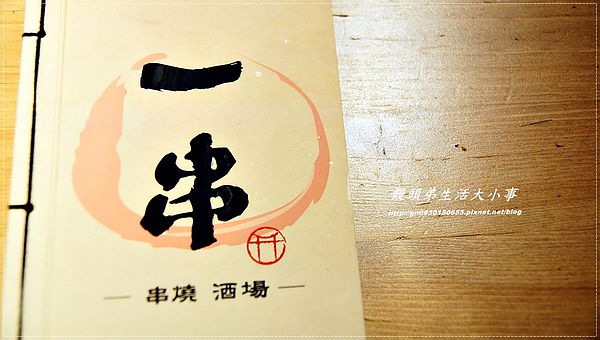 一
串
串燒 酒場
饅頭弟生活大小事
http://gn0930150655.pixnet.net/blog